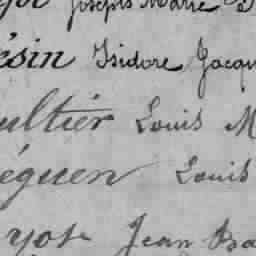 Joseph Marie
ésin Isidore Jacqu
ultier Louis M
éguen Louis
yot Jean Ba